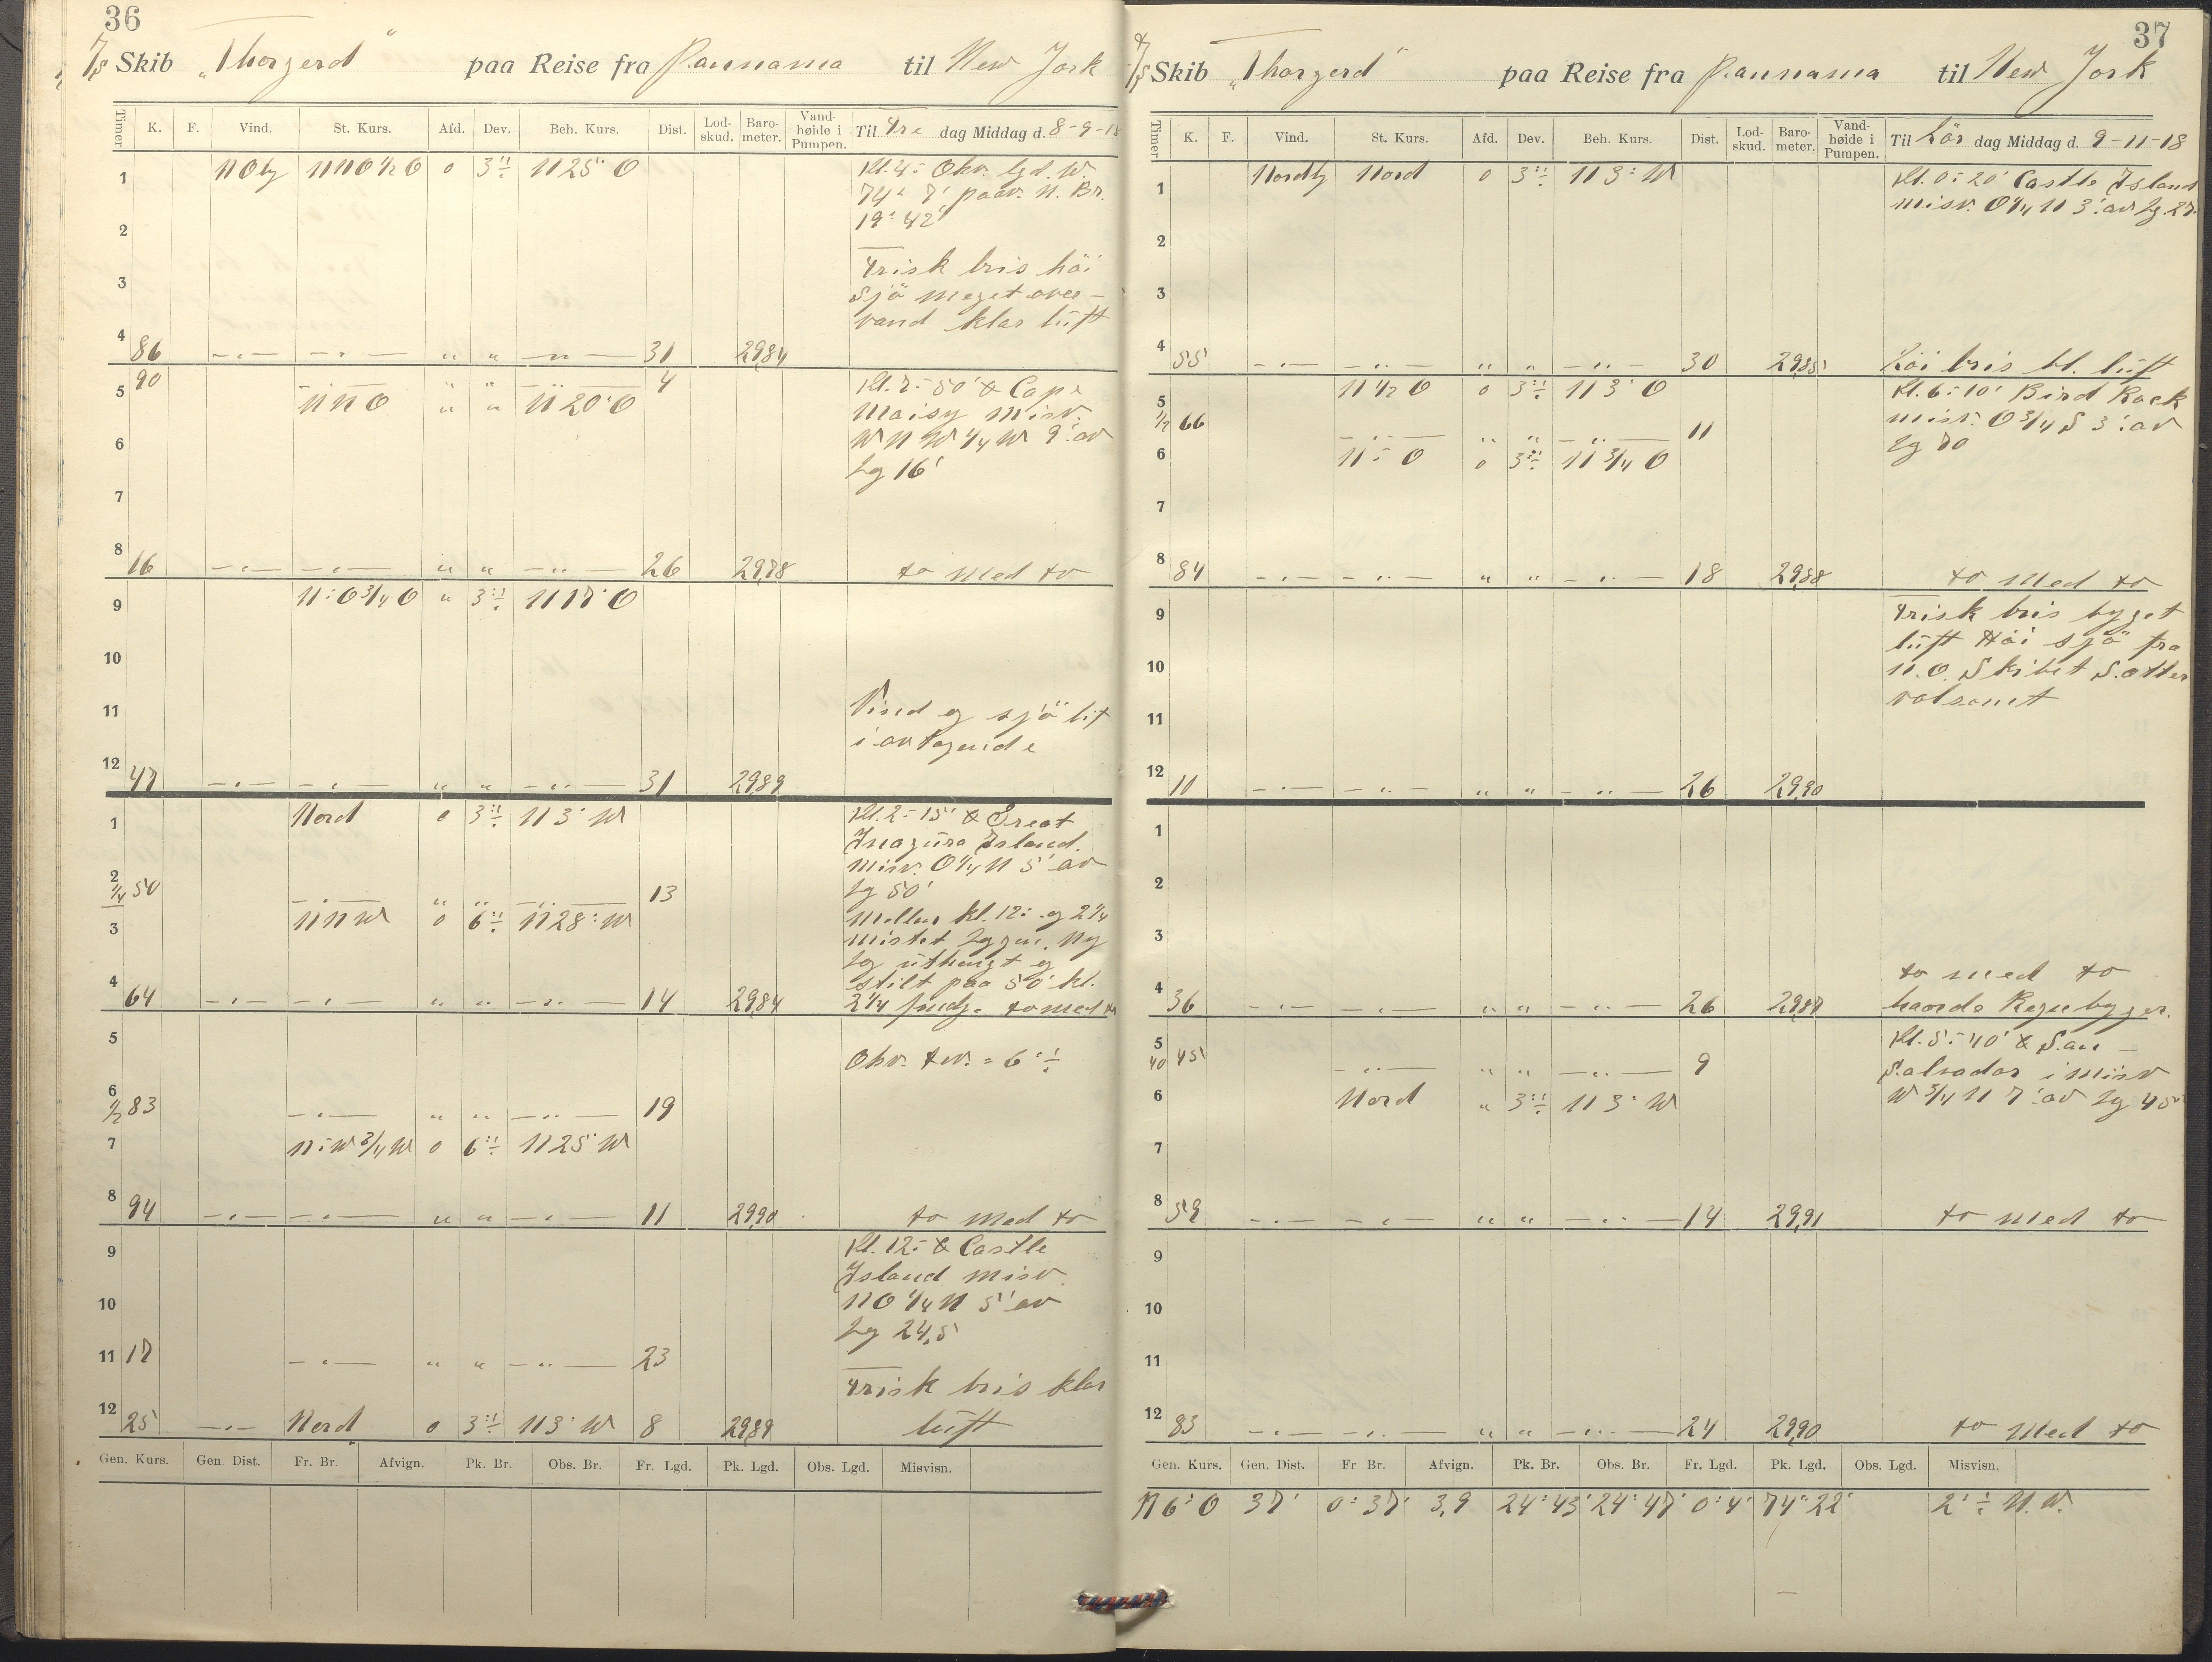 36
S/S Skib „Thorgerd" paa Reise fra Pannama til New York
Timer K. F. Vind. St. Kurs. Afd. Dev. Beh. Kurs. Dist. Lod-skud. Baro-meter. Vand-høide i Pumpen. Til Fre dag Middag d. 8-9-18
1 NO NNO 1/2 O 0 3 N 25° O Kl. 4:- Obv. lgd. W.
74° 7' paav. N. Br.
2 19° 42'
Frisk bris höi
3 sjö meget over-
vand klar lüft
4 86 -„- -„- „ „ -„- 31 29,84
90 -„- „ „ -„- 4 Kl. 7:-50' Cape
5 NNO „ „ N 20° O Maisy misv.
6 WNW 1/4 W 9' av
Lg 16'
7
8 16 -„- -„- „ „ -„- 26 29,88 to med to
9 N:O 3/4 O „ 3 N 17° O
10
11 Vind og sjö lit
i avtagende
12 47 -„- -„- „ „ -„- 31 29,89
1 Nord 0 3 N 3° W Kl. 2:-15' Great
Inagüra Island.
misv. O 1/4 N 5' av
2 1/4 50 -„- „ „ -„- 13 Lg 50'
3 NNW 0 6 N 28° W Mellem kl. 12:- og 2 1/4
mistet Loggen. Ny
Lg üthengt og
stilt paa 50' kl.
4 64 -„- -„- „ „ -„- 14 29,84 2 1/4 to med to
5 Obv. = 6
6 1/2 83 -„- „ „ -„- 19
7 N:W 3/4 W 0 6 N 25° W
8 94 -„- -„- „ „ -„- 11 29,90 to med to
9 Kl. 12:- Castle
Island misv.
10 NO 1/4 N 5' av
Lg 24,5
11 17 -„- „ „ -„- 23
Frisk bris klar
12 25 -„- Nord 0 3 N 3° W 8 29,89 lüft
Gen. Kurs. Gen. Dist. Fr. Br. Afvign. Pk. Br. Obs. Br. Fr. Lgd. Pk. Lgd. Obs. Lgd. Misvisn.
37
S/S Skib „Thorgerd" paa Reise fra Pannama til New York
Timer K. F. Vind. St. Kurs. Afd. Dev. Beh. Kurs. Dist. Lod-skud. Baro-meter. Vand-høide i Pumpen. Til Lör dag Middag d. 9-11-18
1 Nordlg Nord 0 3 N 3° W Kl. 0:-20' Castle Island
misv. O 1/4 N 3' av Lg. 27.
2
3
4 55 -„- -„- „ „ -„- 30 29,85 Löi bris kl. lüft
5 N 1/2 O 0 3 N 3° O Kl. 6:-10' Bird Rock
1/2 66 -„- „ „ -„- 11 misv. O 3/4 S 3' av
6 N:-O 0 3 N 3/4 O Lg 70
7
8 84 -„- -„- „ „ -„- 18 29,88 to med to
9 Frisk bris byget
lüft Höi sjö fra
10 N.O. Skibet Sætter
voldsomt
11
12 10 -„- -„- „ „ -„- 26 29,90
1
2
3
to med to
4 36 -„- -„- „ „ -„- 26 29,87 haarde Regnbyger.
5 40 45 -„- „ „ -„- 9 Kl. 5:-40' San-
Salvador i misv
6 Nord „ 3 N 3° W W 3/4 N 7' av Lg 45
7
8 59 -„- -„- „ „ -„- 14 29,91 to med to
9
10
11
12 83 -„- -„- „ „ -„- 24 29,90 to med to
Gen. Kurs. Gen. Dist. Fr Br. Afvign. Pk. Br. Obs. Br. Fr. Lgd. Pk. Lgd. Obs. Lgd. Misvisn.
N 6° O 37' 0° 37' 3,9 24° 43' 24° 47' 0° 4' 74° 22' 2° N.W.